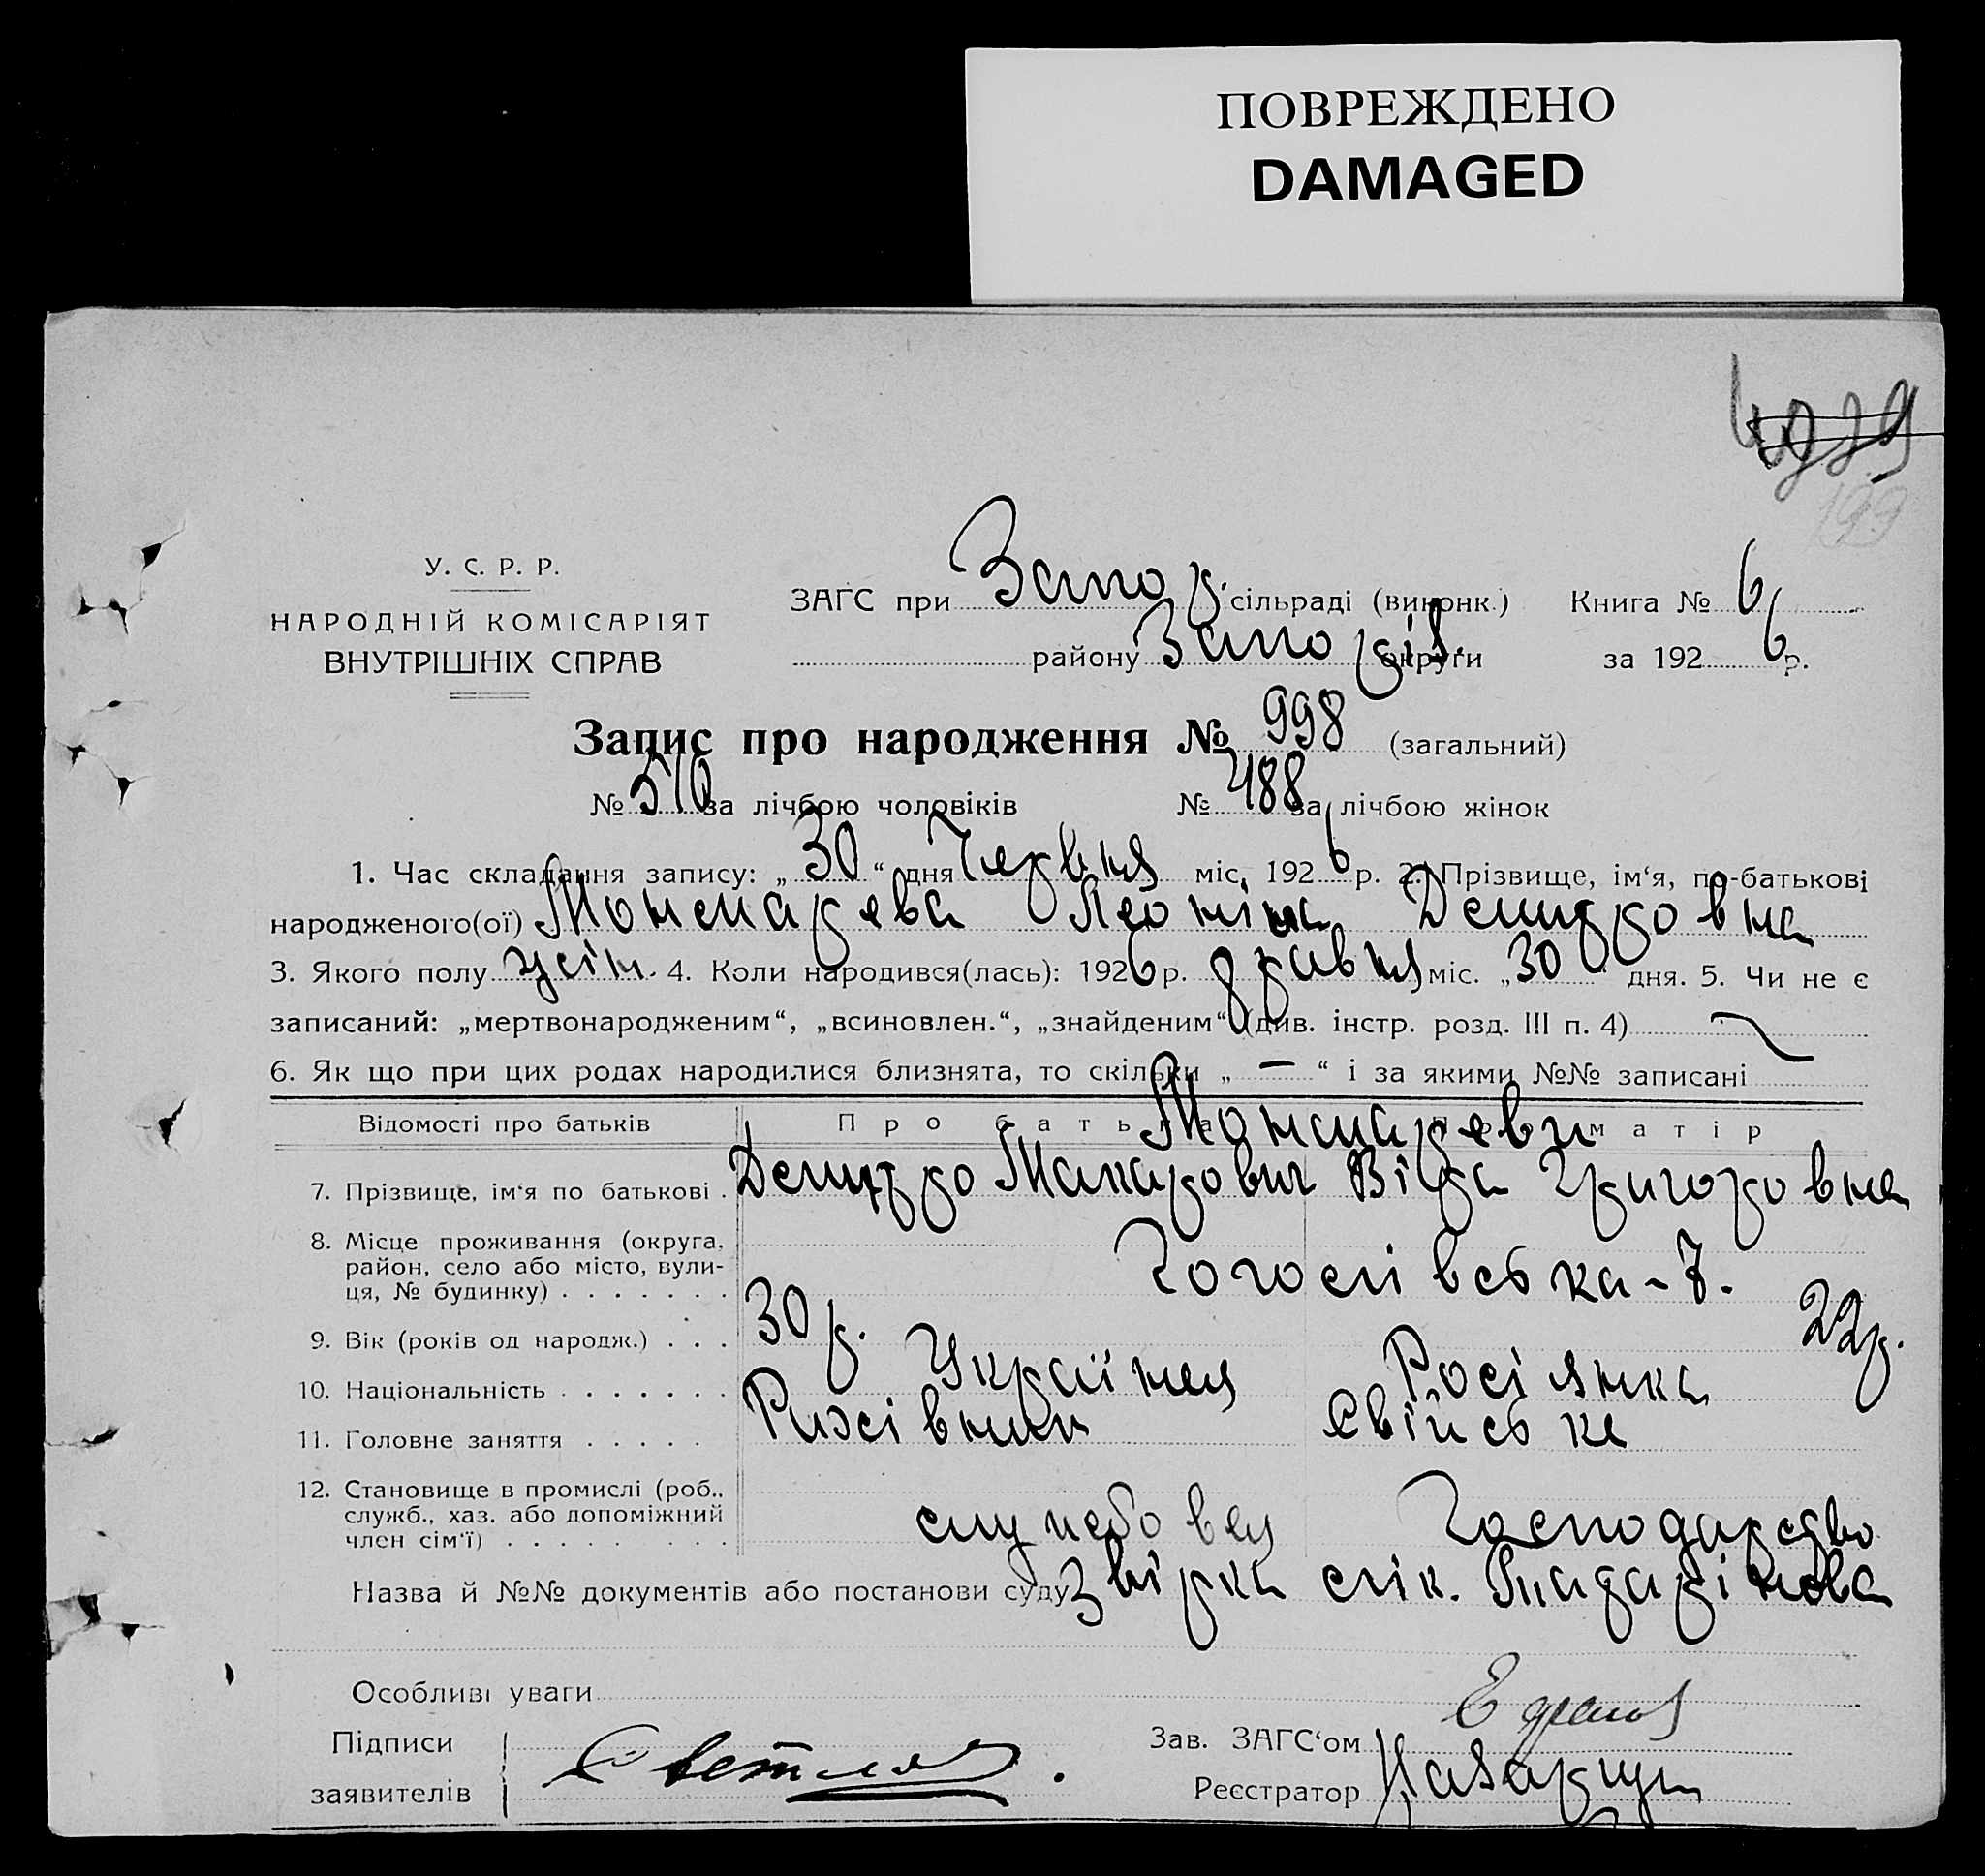 ПОВРЕЖДЕНО
DAMAGED
199
У. С. Р. Р.
НАРОДНІЙ КОМІСАРІЯТ
ВНУТРІШНІХ СПРАВ
ЗАГС при Запор. сільраді (виконк.) Книга № 6
району Запоріз. округи за 1926 р.
Запис про народження № 998 (загальний)
№ 510 за лічбою чоловіків № 488 за лічбою жінок
1. Час складання запису: „30“ дня Червня міс, 1926 р. 2. Прізвище, ім‘я, по-батькові
народженого(ої) Леоніна
3. Якого полу жін. 4. Коли народився(лась): 1926 р. травня міс. „30“ дня. 5. Чи не є
записаний: „мертвонародженим“, „всиновлен.“, „знайденим“ (див. інстр. розд. III п. 4)
6. Як що при цих родах народилися близнята, то скільки „ — “ і за якими №№ записані
Відомості про батьків Про батька Про матір
7. Прізвище, ім‘я по батькові . Макарович Віра Григоровна
8. Місце проживання (округа, район, село або місто, вулиця, № будинку) . . . . . . . - 7.
9. Вік (років од народж.) . . . 30 р. 22 р.
10. Національність . . . . . . . Українец Росіянка
11. Головне заняття . . . . . Різівник Свійське
12. Становище в промислі (роб., служб., хаз. або допоміжний член сім‘ї) . . . . . . . . службовец Господарство
Назва й №№ документів або постанови суду Звірка лік.
Особливі уваги
Підписи
заявителів
Зав. ЗАГС‘ом
Реєстратор